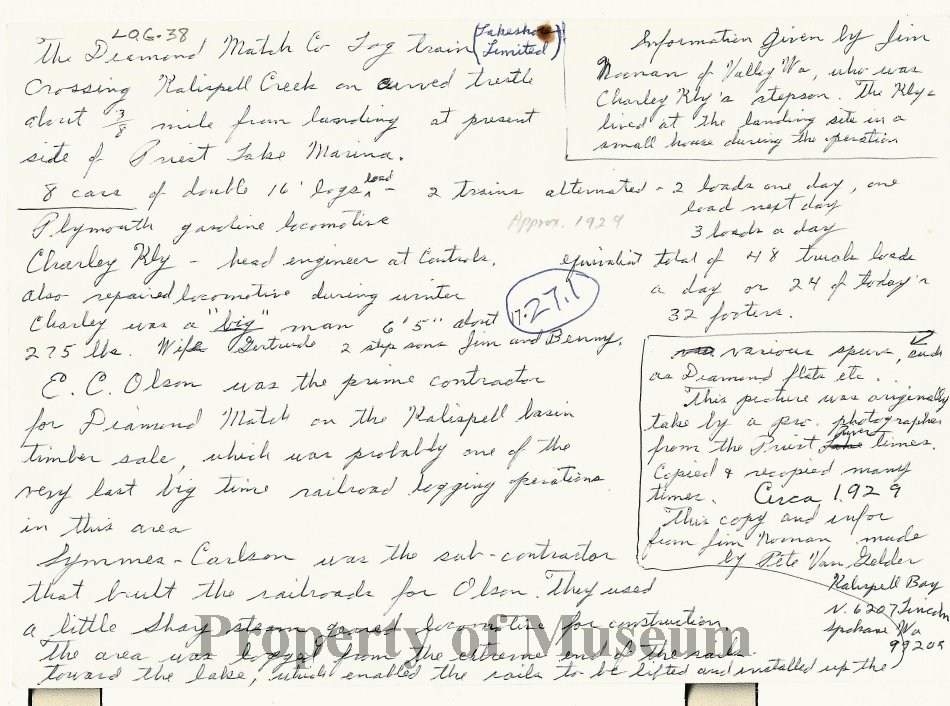 LOG-38
The Diamond Match Co Log train (Lakeshore
Limited)
Crossing Kalispell Creek on curved trestle
about 3/8 mile from landing at present
side of Priest Lake Marina.
Information Given by Jim
Noonan of Valley Wa, who was
Charley Kly's stepson. The Klys
lived at the landing site in a
small house during the operation
8 cars of double 16' logs load - 2 trains alternated - 2 loads one day, one
load next day
3 loads a day
Plymouth gasoline locomotive
Approx. 1929
Charley Kly - head engineer at Controls.
equivalent total of 48 truck loads
a day or 24 of today's
32 footers.
also repaired locomotive during winter
Charley was a "big" man 6'5" about
17.27.1
275 lbs. Wife Gertrude 2 step sons Jim and Benny.
E.C. Olson was the prime contractor
for Diamond Match on the Kalispell basin
timber sale, which was probably one of the
very last big time railroad logging operations
in this area
Symmes-Carlson was the sub-contractor
that built the railroads for Olson. They used
a little Shay steam geared locomotive for construction
The area was logged from the extreme end of the rails
toward the lake, which enabled the rails to be lifted and installed up the
various spurs, such
as Diamond flats etc.
This picture was originally
take by a pro. photographer
from the Priest River times.
Copied & recopied many
times. Circa 1929
This copy and infor
from Jim Noonan made
by Pete Van Gelder
Kalispell Bay
N. 6207 Lincoln
Spokane Wa
99208
Property of Museum